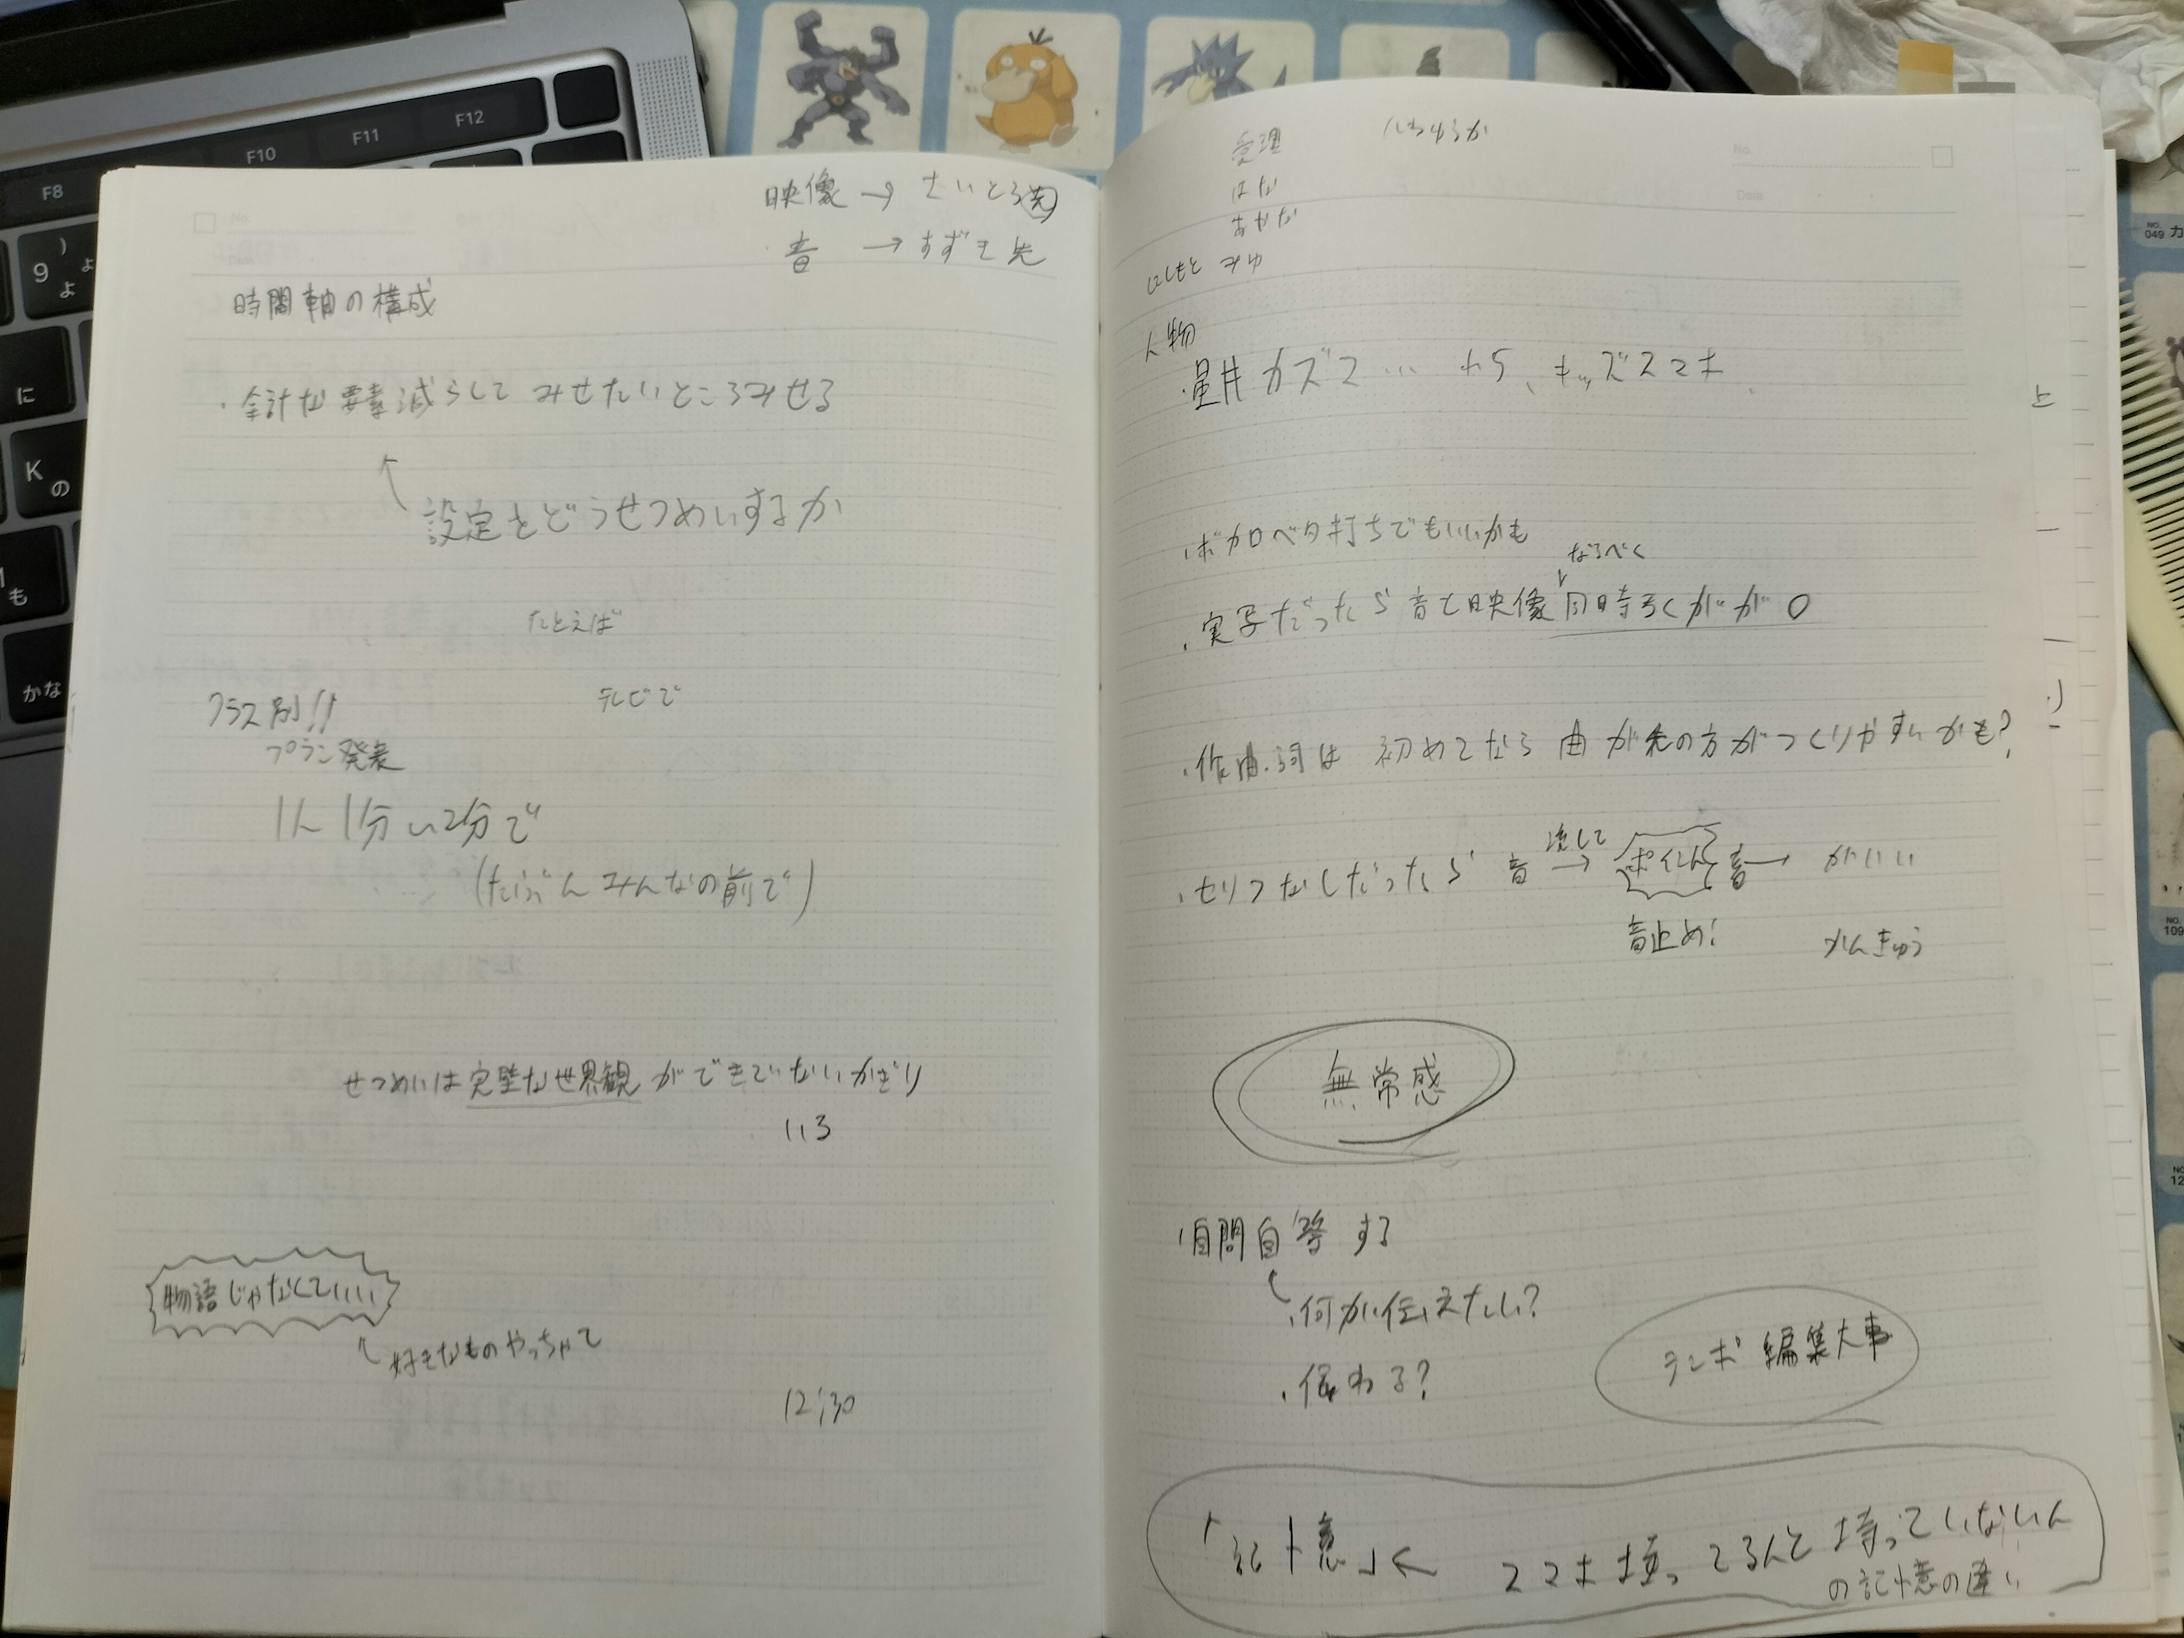 映像 → さいとう先
音 → すずき先
時間軸の構成
・余計な要素減らして みせたいところみせる
設定をどうせつめいするか
たとえば
テレビで
クラス別!!
プラン発表
1人 1分い2分で
(たぶんみんなの前で)
せつめいは完璧な世界観ができていないかぎり
いる
物語じゃなくていい
好きなものやっちゃて
12:30
受理
はな
あかな
にしもと みゆ
人物
・星井カズマ… から、キッズスマホ
・ボカロベタ打ちでもいいかも
なるべく
・実写だったら音と映像同時ろくがが○
・作曲.詞は 初めてなら 曲が先の方がつくりやすいかも?
・セリフなしだったら 音 流して → ポイント 音→ がいい
音止め!
かんきゅう
無常感
・自問自答する
・何が伝えたい?
・伝わる?
テンポ 編集大事
「記憶」← スマホ持ってる人と持っていない人
の記憶の違い
F8
F10
F11
F12
9
よ
に
K
の
も
かな
No.
Date
NO.
049
NO.
109
NO.